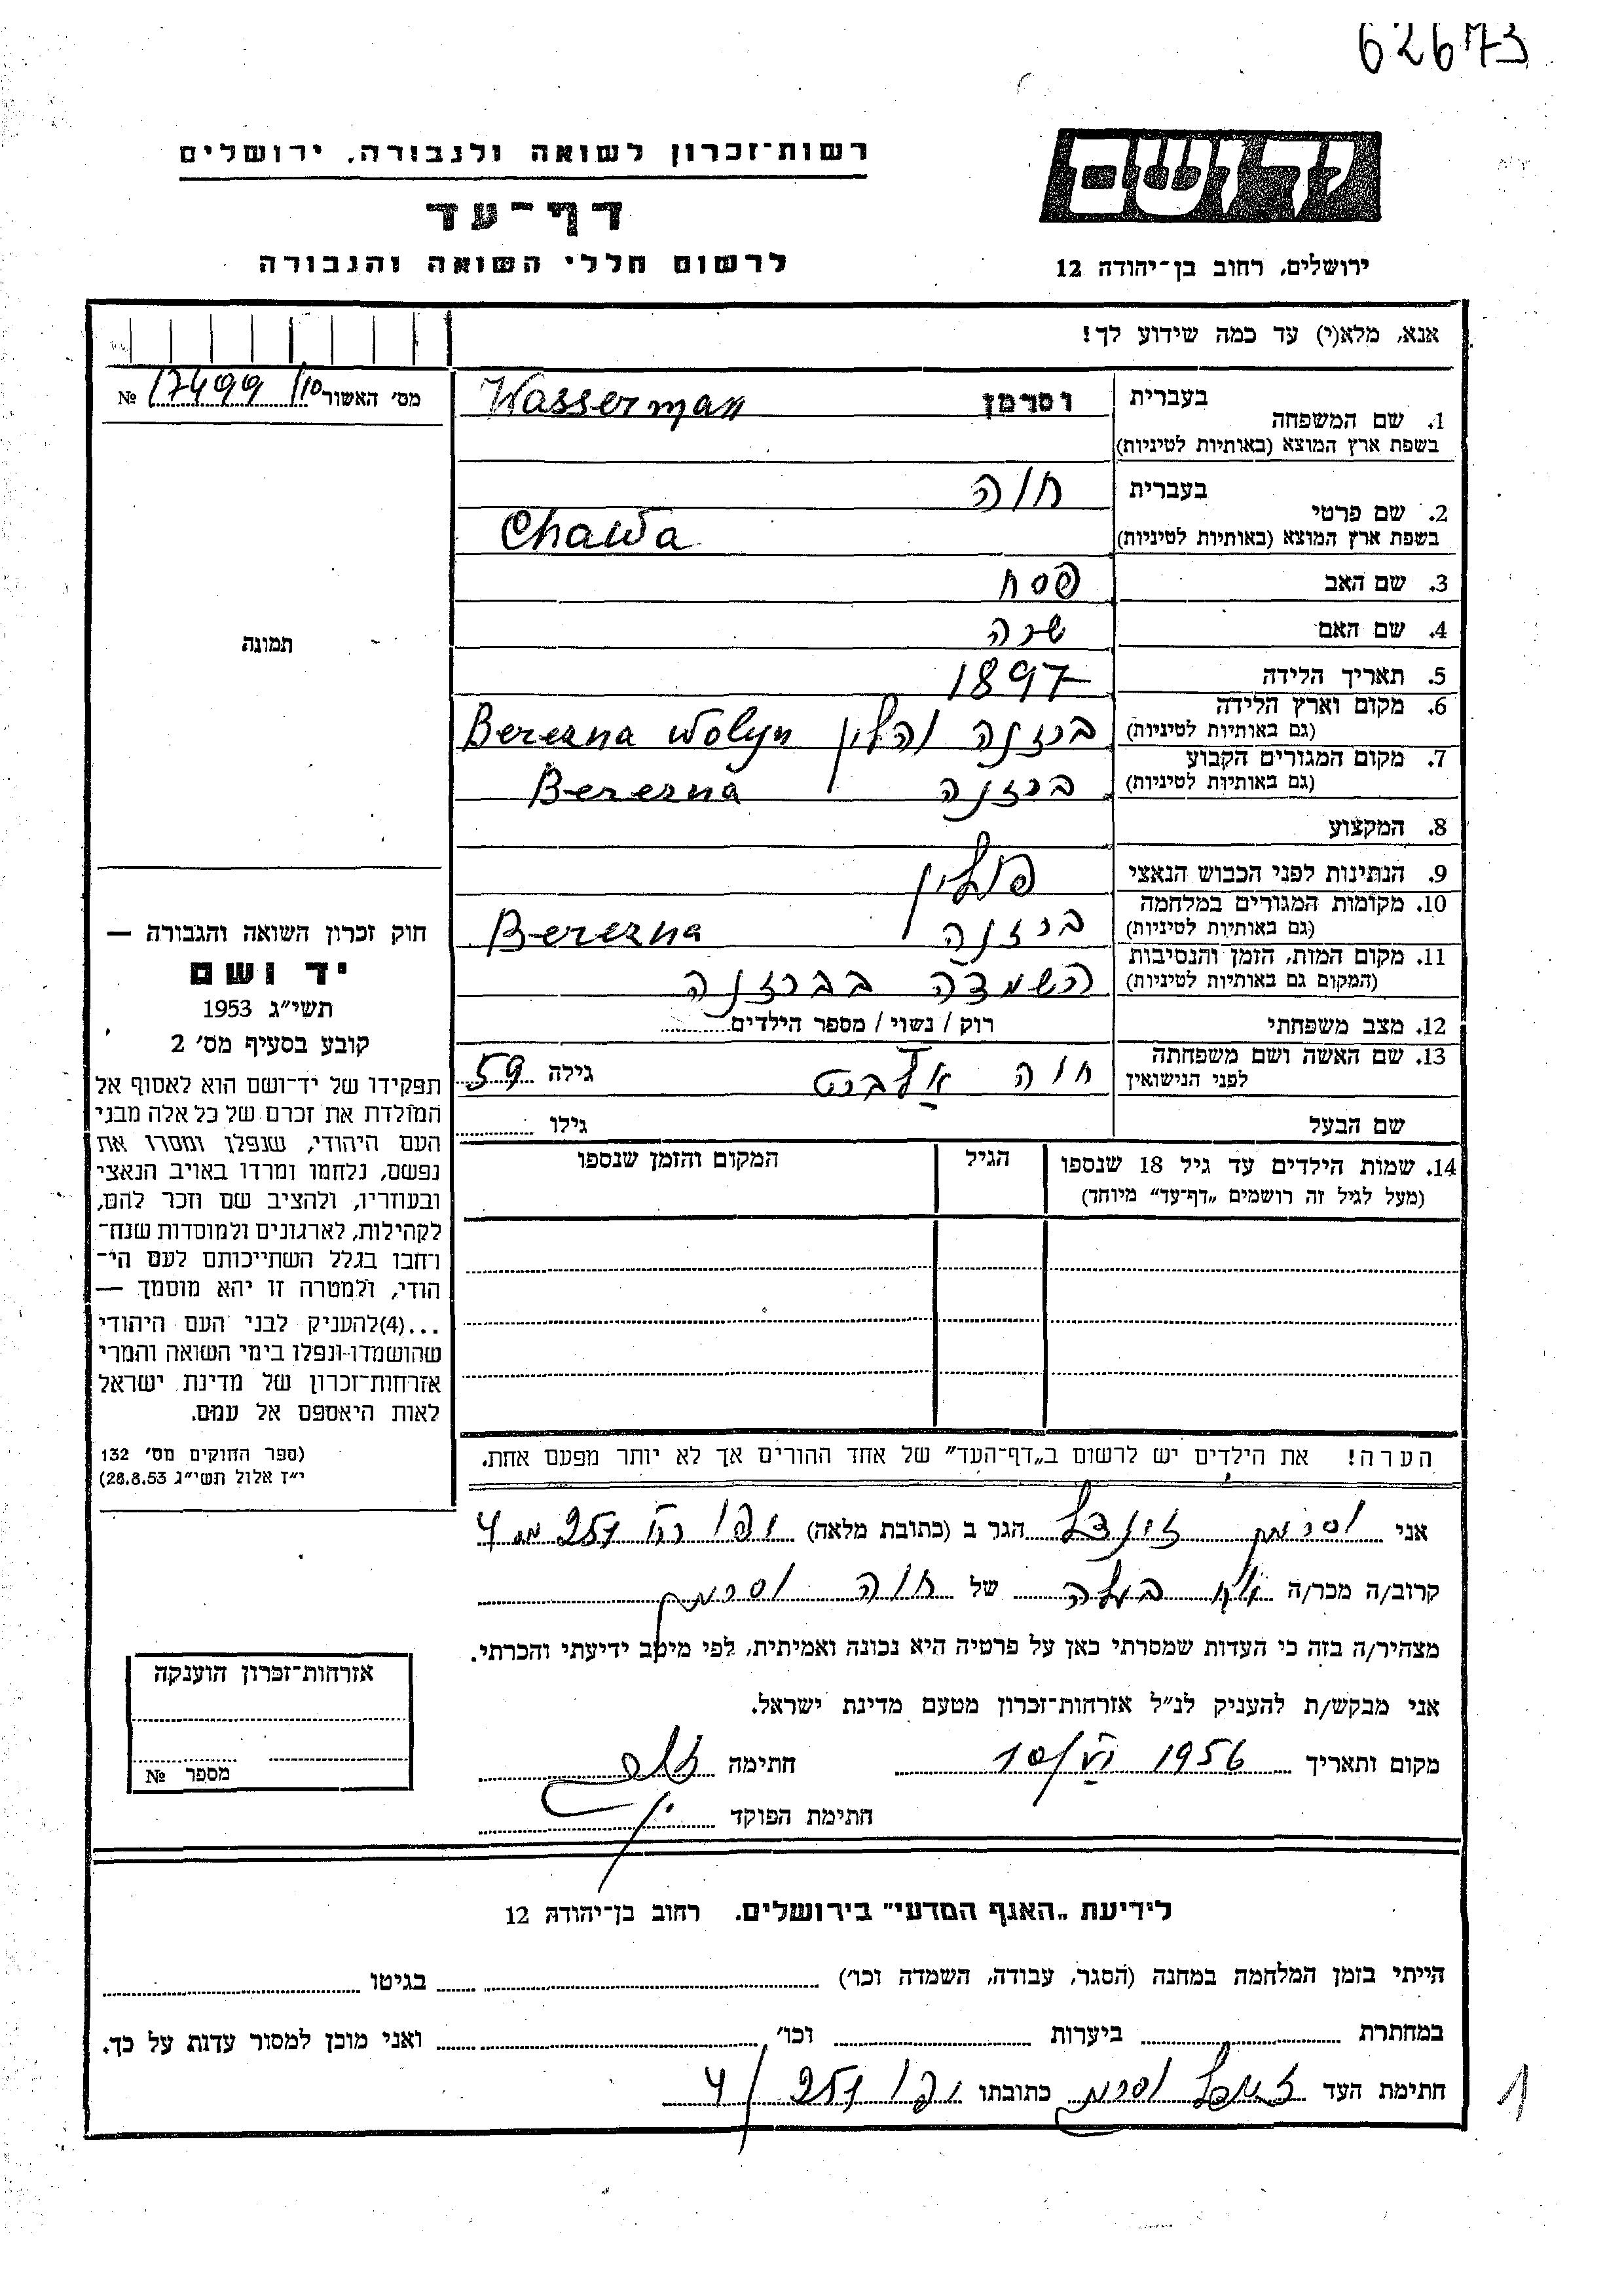 62673
רשות־זכרון לשואה ולגבורה, ירושלים
יד ושם
דף־עד
לרשום חללי השואה והגבורה
ירושלים, רחוב בן־יהודה 12
אנא, מלא(י) עד כמה שידוע לך!
מס׳ האשור 17499/10 №
1. שם המשפחה בעברית וסרמן
בשפת ארץ המוצא (באותיות לטיניות) Wasserman
2. שם פרטי בעברית חוה
בשפת ארץ המוצא (באותיות לטיניות) Chawa
3. שם האב פסח
4. שם האם שרה
5. תאריך הלידה 1897
6. מקום וארץ הלידה (גם באותיות לטיניות) ברזנה ווהלין Berezna Wolyn
7. מקום המגורים הקבוע (גם באותיות לטיניות) ברזנה Berezna
8. המקצוע
9. הנתינות לפני הכבוש הנאצי פולין
10. מקומות המגורים במלחמה (גם באותיות לטיניות) ברזנה Berezna
11. מקום המות, הזמן והנסיבות (המקום גם באותיות לטיניות) השמדה בברזנה
12. מצב משפחתי רוק / נשוי / מספר הילדים
13. שם האשה ושם משפחתה לפני הנישואין חוה גילה 59
שם הבעל גילו
14. שמות הילדים עד גיל 18 שנספו (מעל לגיל זה רושמים „דף־עד” מיוחד)
הגיל
המקום והזמן שנספו
תמונה
חוק זכרון השואה והגבורה —
יד ושם
תשי״ג 1953
קובע בסעיף מס׳ 2
תפקידו של יד־ושם הוא לאסוף אל
המולדת את זכרם של כל אלה מבני
העם היהודי, שנפלו ומסרו את
נפשם, נלחמו ומרדו באויב הנאצי
ובעוזריו, ולהציב שם וזכר להם,
לקהילות, לארגונים ולמוסדות שנח־
רחבו בגלל השתייכותם לעם הי־
הודי, ולמטרה זו יהא מוסמך —
...(4) להעניק לבני העם היהודי
שהושמדו ונפלו בימי השואה והמרי
אזרחות־זכרון של מדינת ישראל
לאות היאספם אל עמם.
(ספר החוקים מס׳ 132
י״ז אלול תשי״ג 28.8.53)
הערה! את הילדים יש לרשום ב„דף־העד” של אחד ההורים אך לא יותר מפעם אחת.
אני וסרמן הגר ב (כתובת מלאה)
קרוב/ה מכר/ה של חוה וסרמן
מצהיר/ה בזה כי העדות שמסרתי כאן על פרטיה היא נכונה ואמיתית, לפי מיטב ידיעתי והכרתי.
אני מבקש/ת להעניק לנ״ל אזרחות־זכרון מטעם מדינת ישראל.
מקום ותאריך 10/VI 1956 חתימה
חתימת הפוקד
אזרחות־זכרון הוענקה
מספר №
לידיעת „האגף המדעי” בירושלים. רחוב בן־יהודה 12
הייתי בזמן המלחמה במחנה (הסגר, עבודה, השמדה וכו׳) בגיטו
במחתרת ביערות וכו׳ ואני מוכן למסור עדות על כך.
חתימת העד וסרמן כתובתו
1